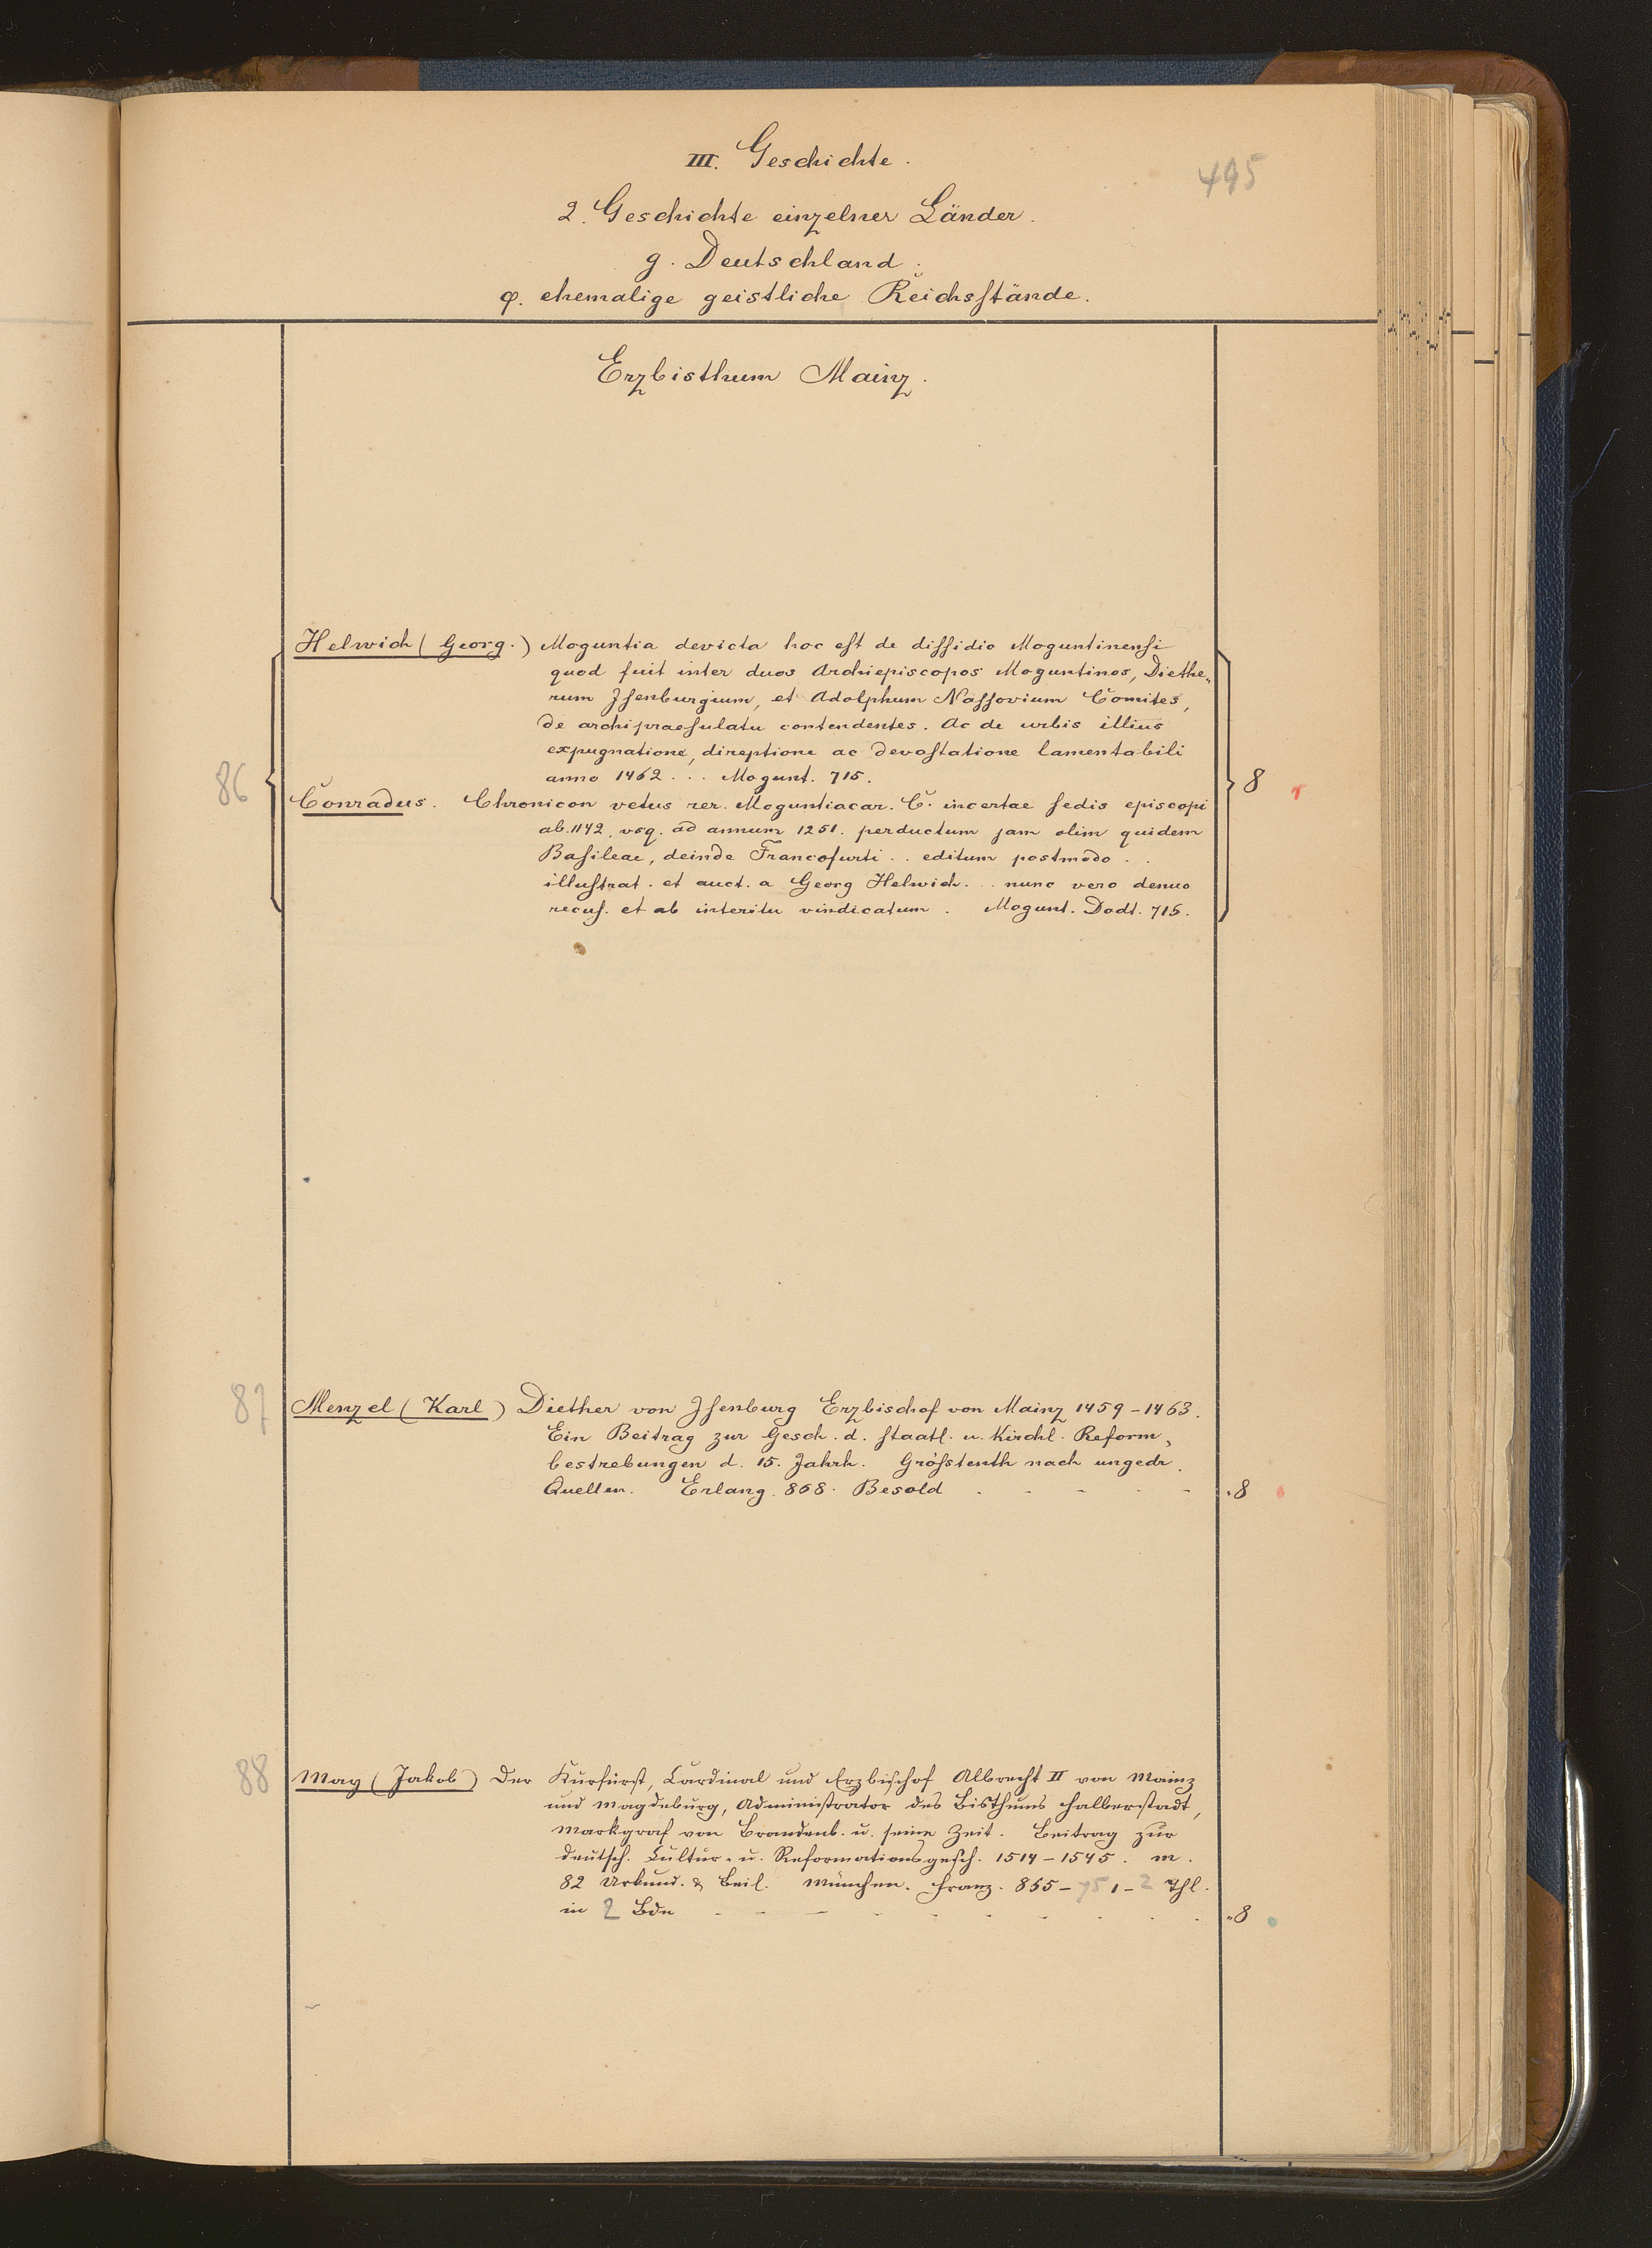 III. Geschichte.
495
2. Geschichte einzelner Länder.
g. Deutschland.
φ. ehemalige geistliche Reichsstände.
Erzbisthum Mainz.
86
Helwich (Georg.) Moguntia devicta hoc est de dissidio Moguntinensi
quod fuit inter duos Archiepiscopos Moguntinos, Diethe„
rum Isenburgium, et Adolphum Nassovium Comites,
de archipraesulatu contendentes. Ac de urbis illius
expugnatione, direptione ac devastatione lamentabili
anno 1462 ... Mogunt. 715.
8
Conradus. Chronicon vetus rer. Moguntiacar. C. incertae sedis episcopi
ab. 1142. vsq. ad annum 1251. perductum jam olim quidem
Basileae, deinde Francofurti .. editum postmodo ..
illustrat. et auct. a Georg Helwich... nunc vero denuo
recus. et ab interitu vindicatum. Mogunt. Dodt. 715.
87
Menzel (Karl) Diether von Isenburg Erzbischof von Mainz 1459-1463.
Ein Beitrag zur Gesch. d. staatl. u. Kirchl. Reform„
bestrebungen d. 15. Jahrh. Grösstenth nach ungedr.
Quellen. Erlang. 868. Besold . - - - - - „8
88
May (Jakob) Der Kurfürst, Cardinal und Erzbischof Albrecht II von Mainz
und Magdeburg, Administrator des Bisthums Halberstadt,
Markgraf von Brandenb. u. seine Zeit. Beitrag zur
deutsch. Cultur- u. Reformationsgesch. 1514-1545. m.
82 Urkund. & Beil. München. Franz. 865-75 1-2 Thl.
in 2 Bdn - - - - - - - - . . „8